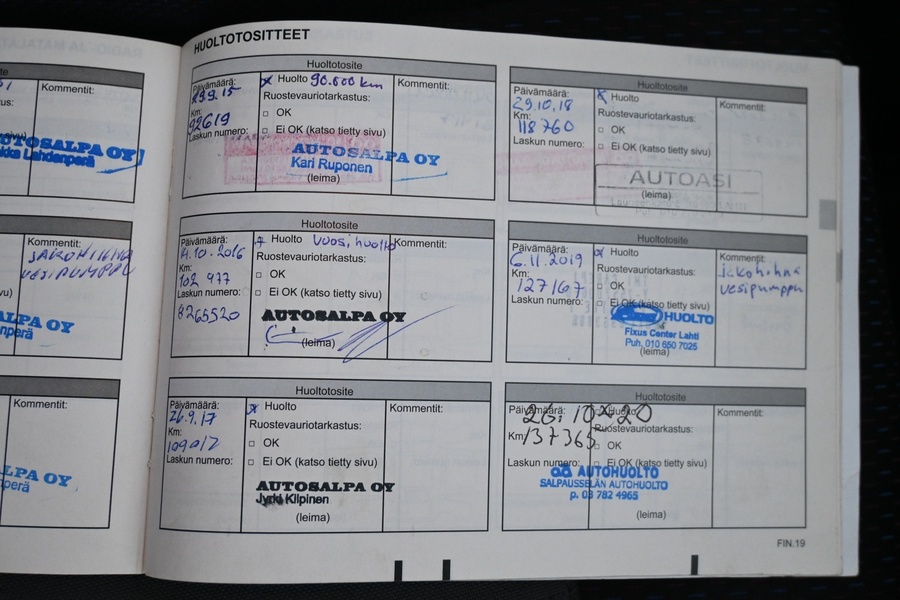 HUOLTOTOSITTEET
Kommentit:
AUTOSALPA OY
Lahdenperä
Kommentit:
JAKOHIHNA
VESIPUMPPU
LPA OY
nperä
Kommentit:
LPA OY
perä
Huoltotosite
Päivämäärä:
Huolto 90.000 km
Kommentit:
29.9.15
Ruostevauriotarkastus:
Km:
OK
92619
Laskun numero:
Ei OK (katso tietty sivu)
AUTOSALPA OY
Kari Ruponen
(leima)
Huoltotosite
Päivämäärä:
Huolto Vuosihuolto
Kommentit:
14.10.2016
Ruostevauriotarkastus:
Km:
OK
102 977
Laskun numero:
Ei OK (katso tietty sivu)
8265520
AUTOSALPA OY
(leima)
Huoltotosite
Päivämäärä:
Huolto
Kommentit:
26.9.17
Ruostevauriotarkastus:
Km:
OK
109012
Laskun numero:
Ei OK (katso tietty sivu)
AUTOSALPA OY
Jyrki Kilpinen
(leima)
Huoltotosite
Päivämäärä:
Huolto
Kommentit:
29.10.18
Ruostevauriotarkastus:
Km:
OK
118 760
Laskun numero:
Ei OK (katso tietty sivu)
AUTOASI
(leima)
Huoltotosite
Päivämäärä:
Huolto
Kommentit:
6.11.2019
Ruostevauriotarkastus:
jakohihna
Km:
OK
vesipumppu
127167
Laskun numero:
Ei OK (katso tietty sivu)
HUOLTO
Fixus Center Lahti
Puh. 010 650 7025
(leima)
Huoltotosite
Päivämäärä:
Huolto
Kommentit:
26.10.20
Ruostevauriotarkastus:
Km:
137365
OK
Laskun numero:
Ei OK (katso tietty sivu)
AUTOHUOLTO
SALPAUSSELÄN AUTOHUOLTO
p. 03 782 4965
(leima)
FIN.19